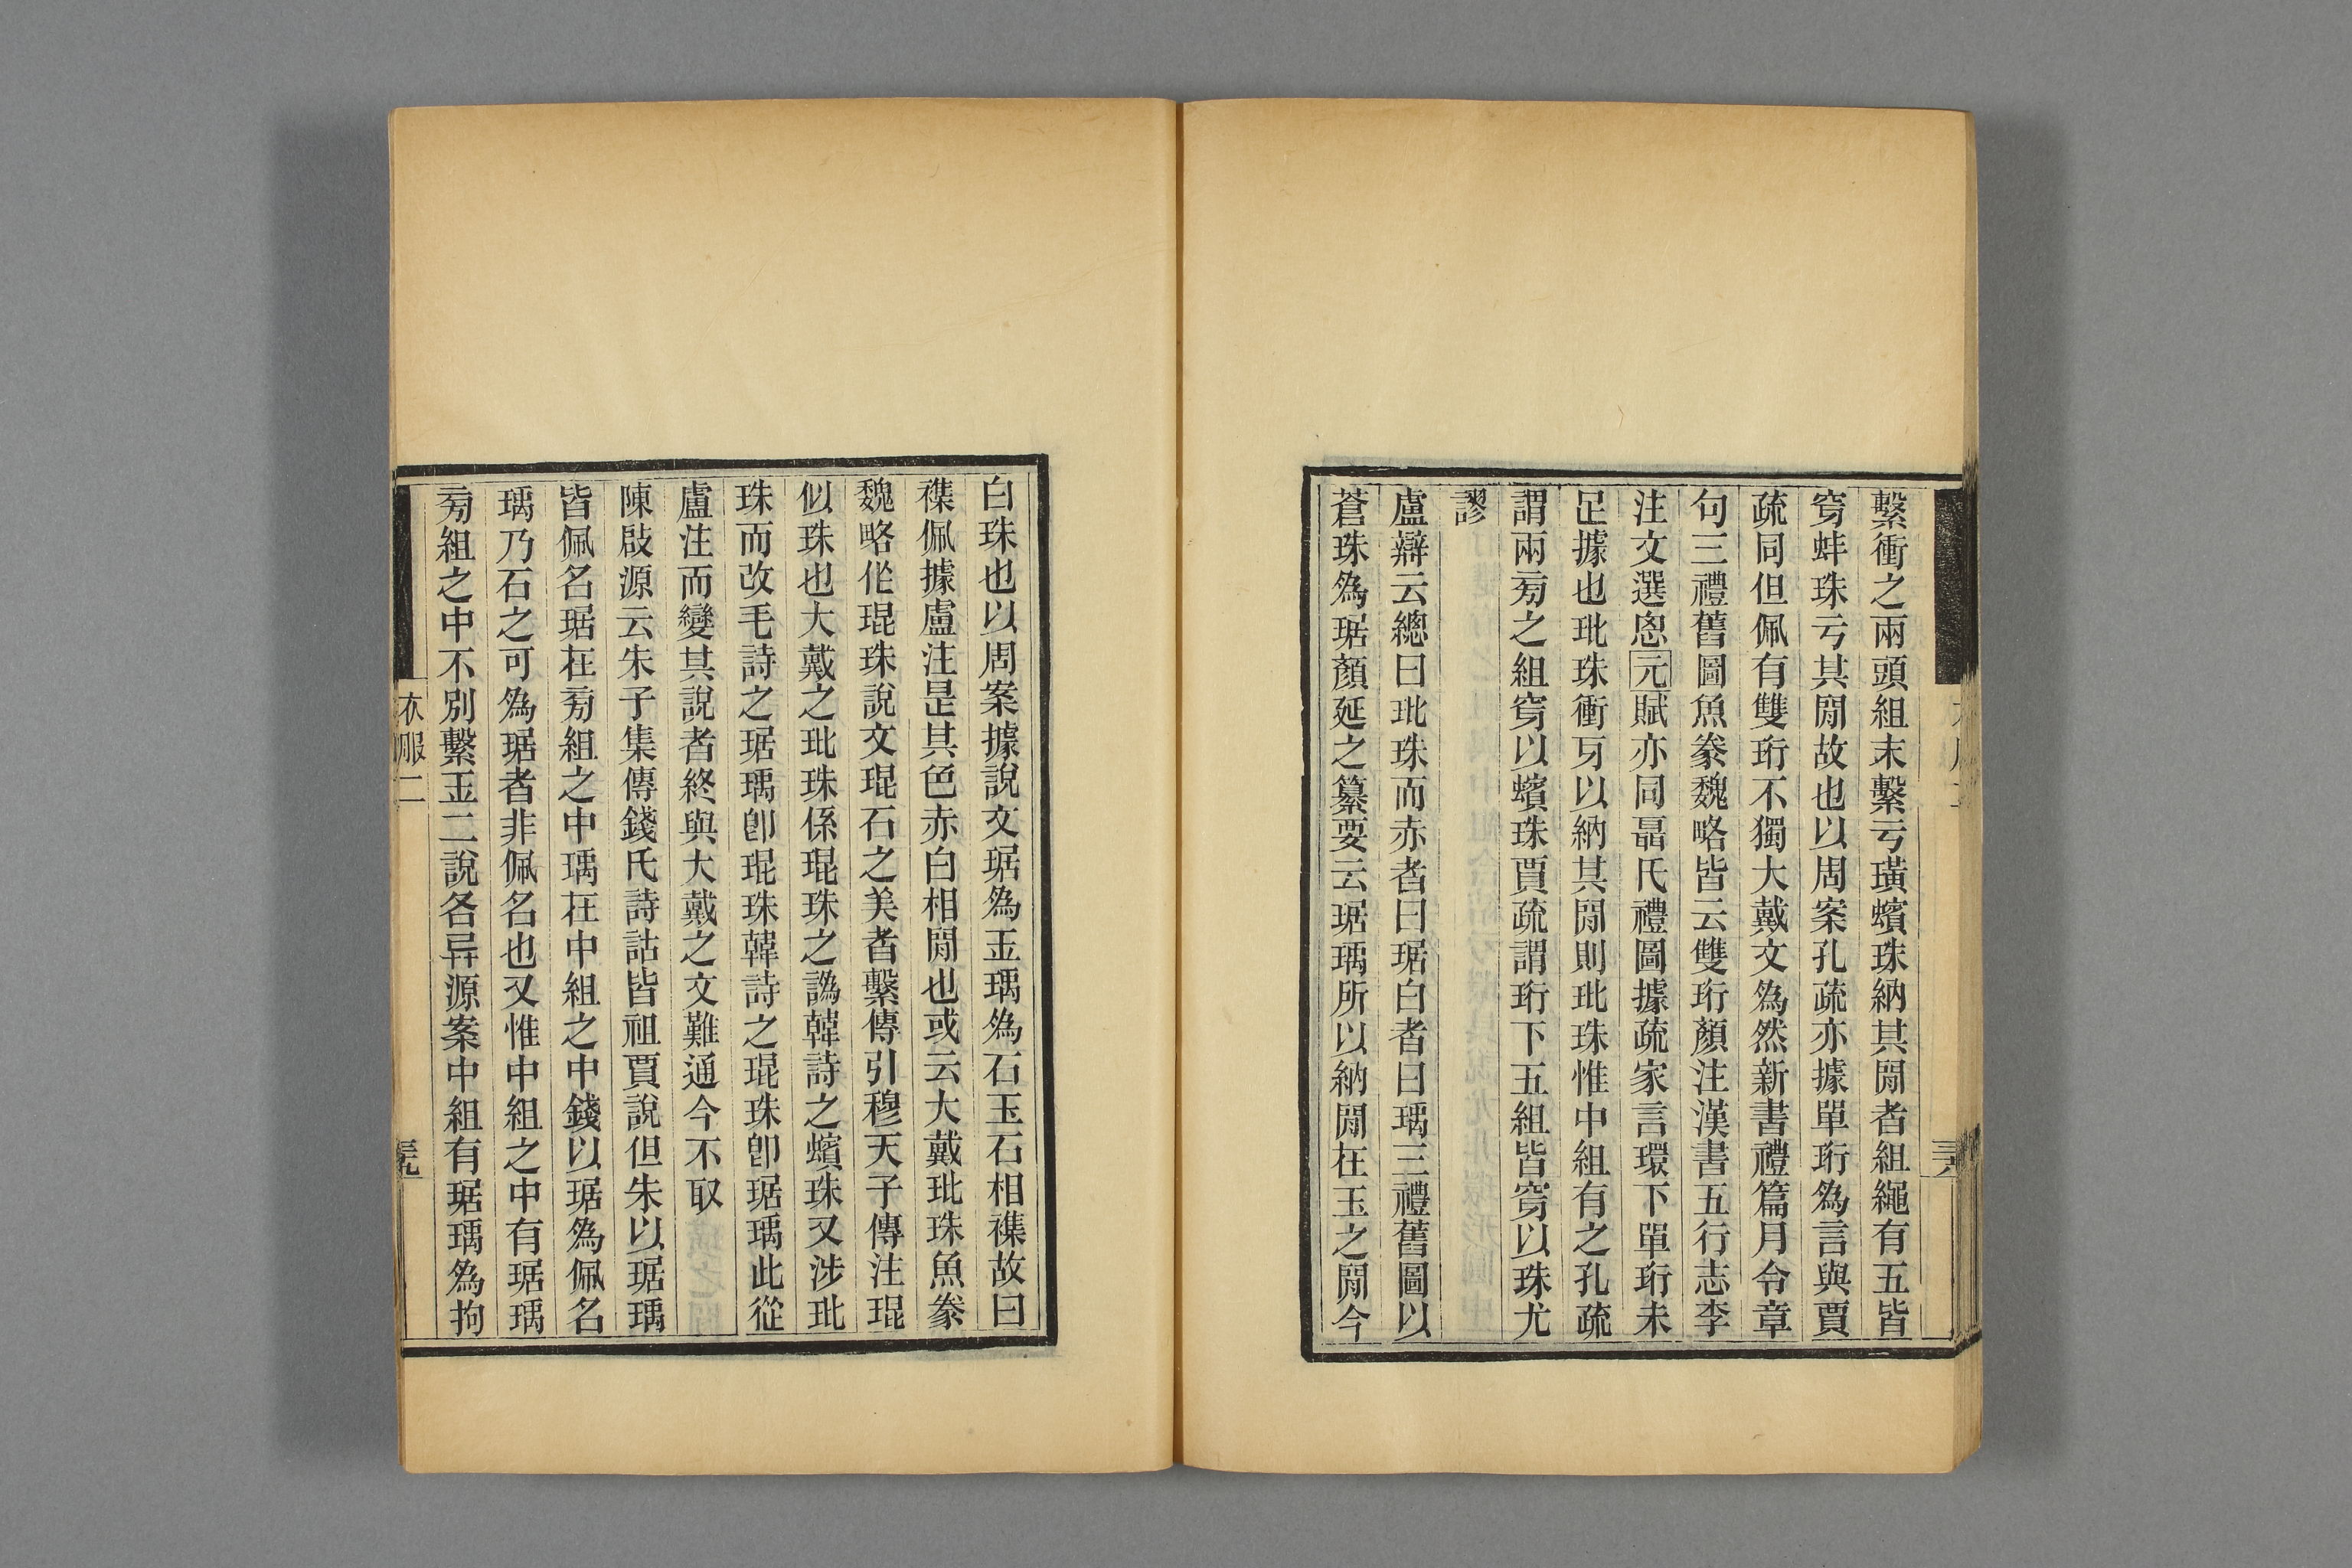 繫衝之兩頭組末繫亏璜蠙珠納其閒者組繩有五皆
穿蚌珠亏其閒故也以周案孔疏亦據單珩爲言與賈
疏同但佩有雙珩不獨大戴文爲然新書禮篇月令章
句三禮舊圖魚豢魏略皆云雙珩顏注漢書五行志李
注文選恖元賦亦同聶氏禮圖據疏家言環下單珩未
足據也玭珠衝牙以納其閒則玭珠惟中組有之孔疏
謂兩旁之組穿以蠙珠賈疏謂珩下五組皆穿以珠尤
謬
盧辯云總曰玭珠而赤者曰琚白者曰瑀三禮舊圖以
蒼珠爲琚顏延之纂要云琚瑀所以納閒在玉之閒今
白珠也以周案據說文琚爲玉瑀爲石玉石相襍故曰
襍佩據盧注是其色赤白相閒也或云大戴玭珠魚豢
魏略作琨珠說文琨石之美者繫傳引穆天子傳注琨
似珠也大戴之玭珠係琨珠之譌韓詩之蠙珠又涉玭
珠而改毛詩之琚瑀卽琨珠韓詩之琨珠卽琚瑀此從
盧注而變其說者終與大戴之文難通今不取
陳啟源云朱子集傳錢氏詩詁皆祖賈說但朱以琚瑀
皆佩名琚在旁組之中瑀在中組之中錢以琚爲佩名
瑀乃石之可爲琚者非佩名也又惟中組之中有琚瑀
旁組之中不別繫玉二說各異源案中組有琚瑀爲拘
衣服二
三九